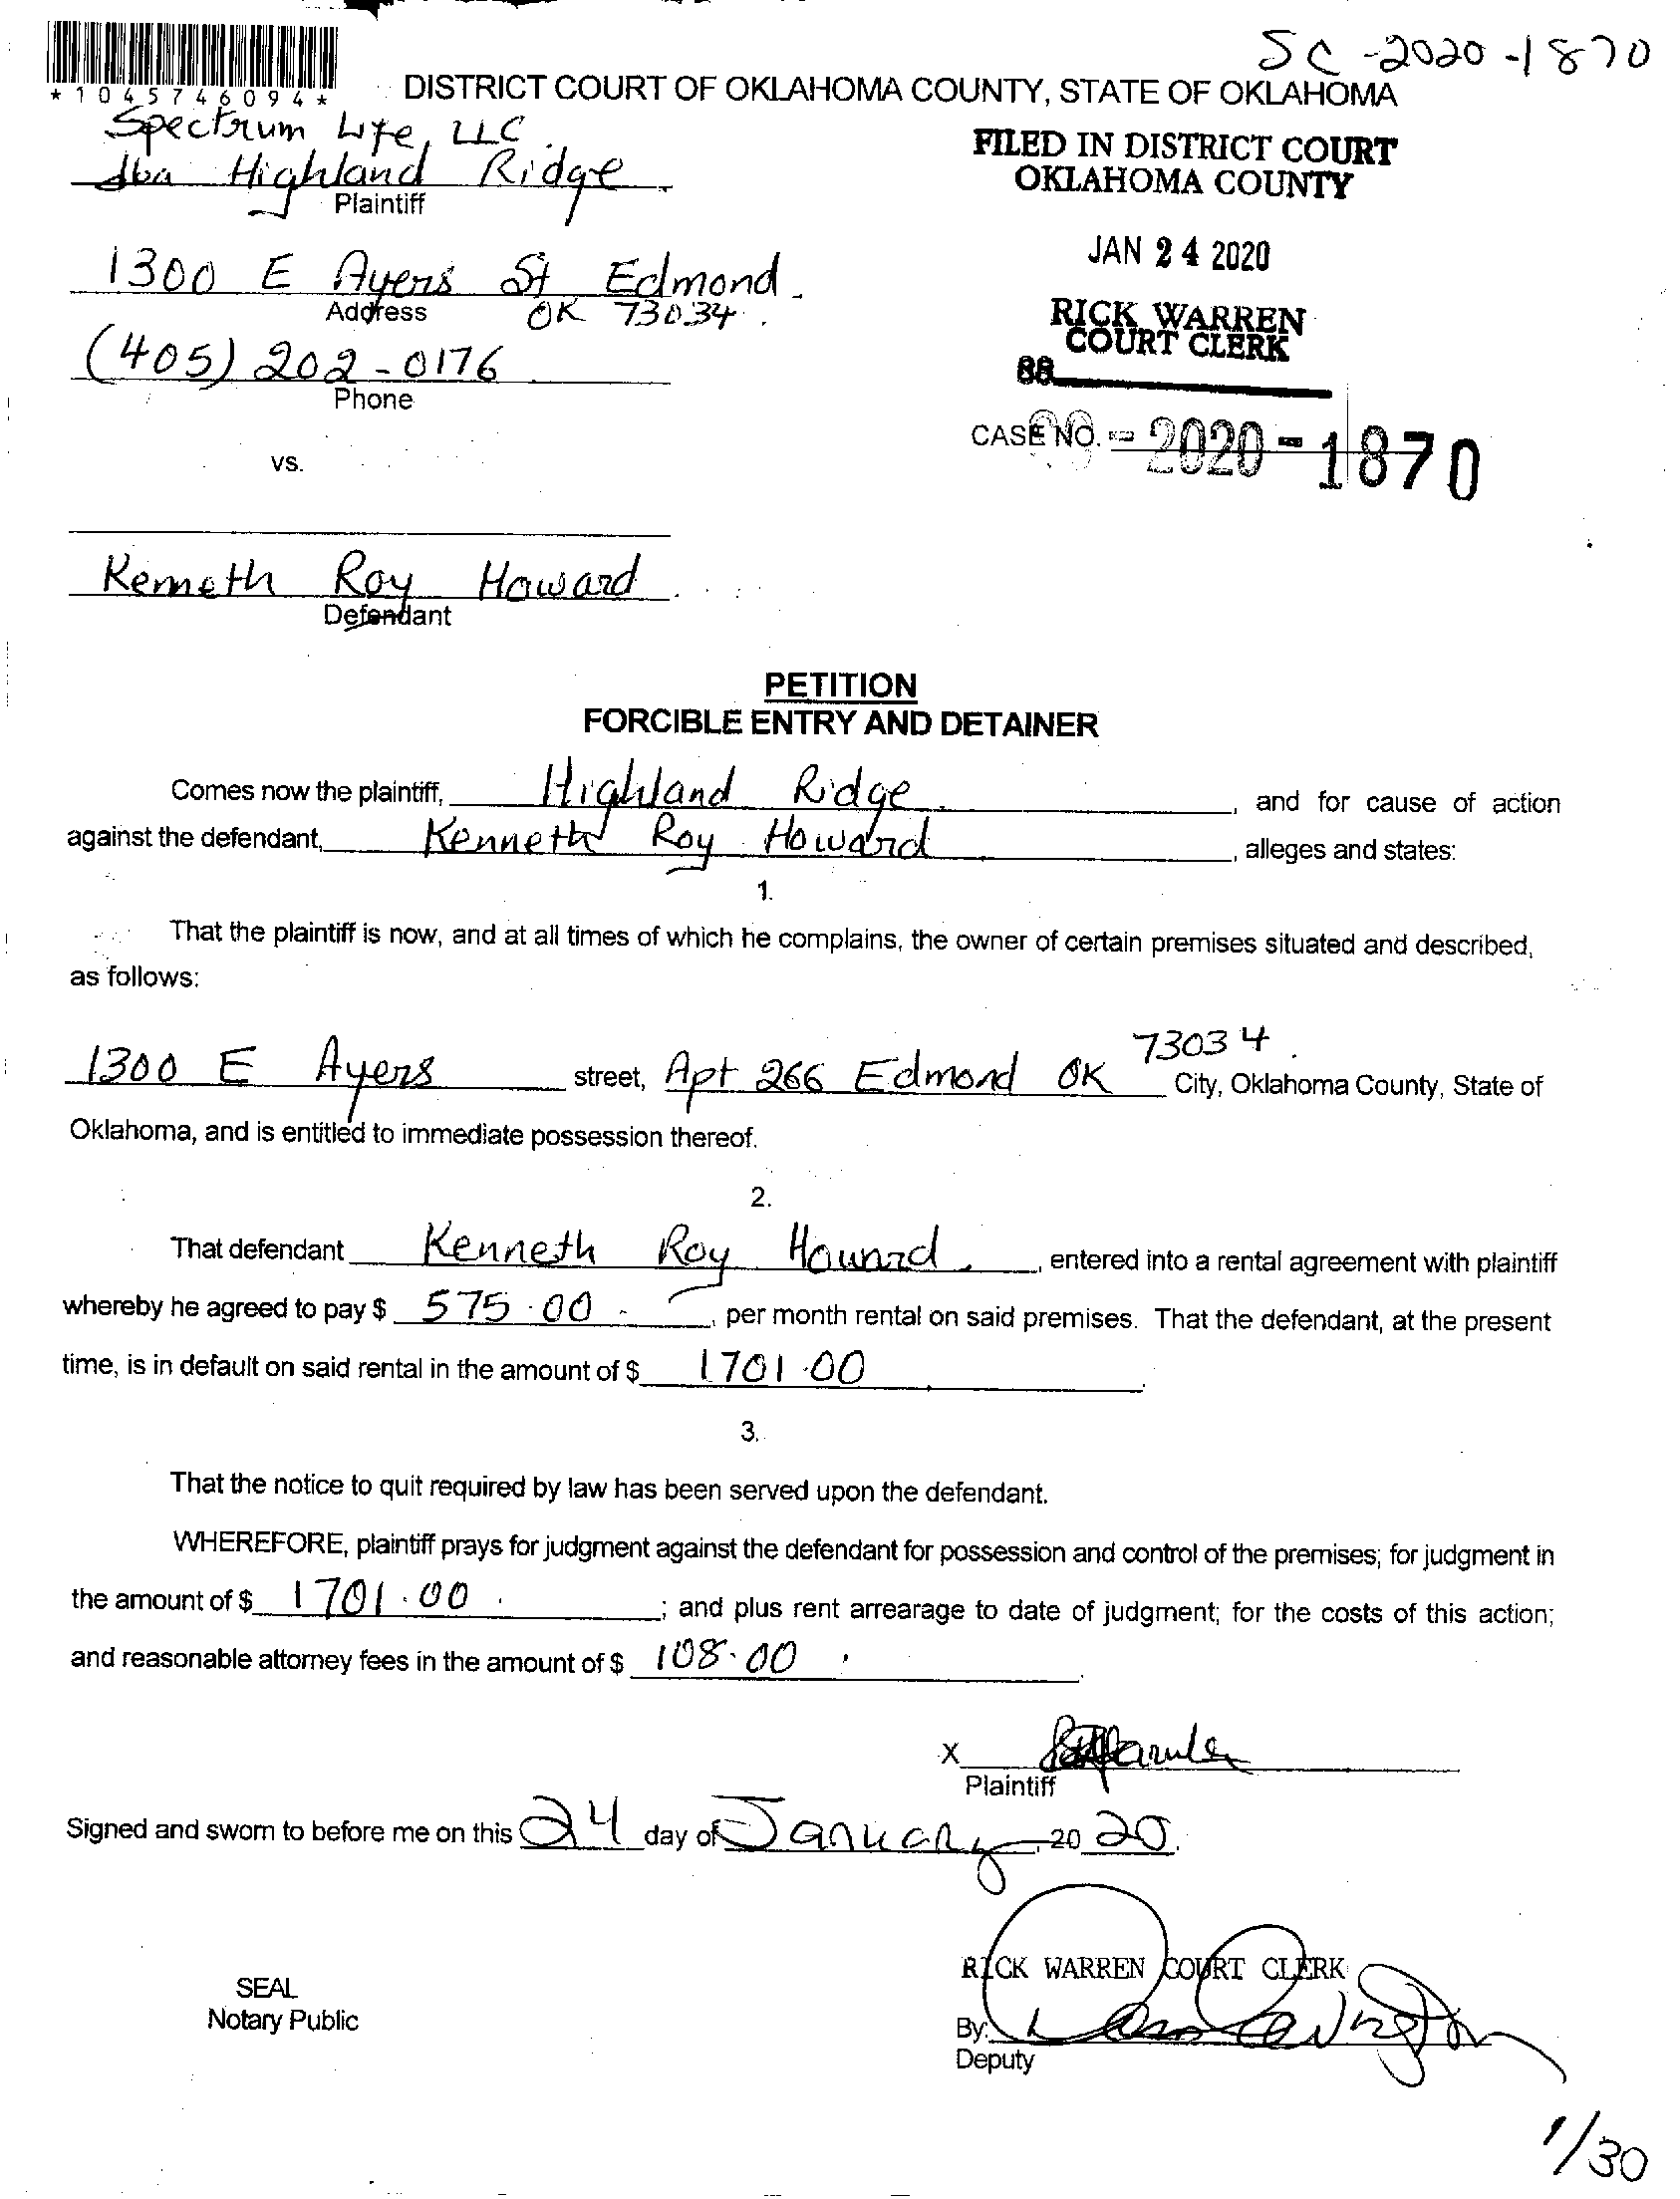 SC-2020-1870
*1045746094*
DISTRICT COURT OF OKLAHOMA COUNTY, STATE OF OKLAHOMA
Spectrum Life, LLC
dba Highland Ridge
Plaintiff
FILED IN DISTRICT COURT
OKLAHOMA COUNTY
JAN 24 2020
RICK WARREN
COURT CLERK
88
1300 E Ayers St Edmond
Address OK 73034
(405) 202-0176
Phone
CASE NO. - 2020-1870
vs.
Kenneth Roy Howard
Defendant
PETITION
FORCIBLE ENTRY AND DETAINER
Comes now the plaintiff, Highland Ridge, and for cause of action
against the defendant, Kenneth Roy Howard, alleges and states:
1.
That the plaintiff is now, and at all times of which he complains, the owner of certain premises situated and described,
as follows:
73034
1300 E Ayers street, Apt 266 Edmond OK City, Oklahoma County, State of
Oklahoma, and is entitled to immediate possession thereof.
2.
That defendant Kenneth Roy Howard, entered into a rental agreement with plaintiff
whereby he agreed to pay $ 575.00, per month rental on said premises. That the defendant, at the present
time, is in default on said rental in the amount of $ 1701.00.
3.
That the notice to quit required by law has been served upon the defendant.
WHEREFORE, plaintiff prays for judgment against the defendant for possession and control of the premises; for judgment in
the amount of $ 1701.00; and plus rent arrearage to date of judgment; for the costs of this action;
and reasonable attorney fees in the amount of $ 108.00.
X
Plaintiff
Signed and sworn to before me on this 24 day of January, 2020.
RICK WARREN COURT CLERK
SEAL
Notary Public
By:
Deputy
1/30